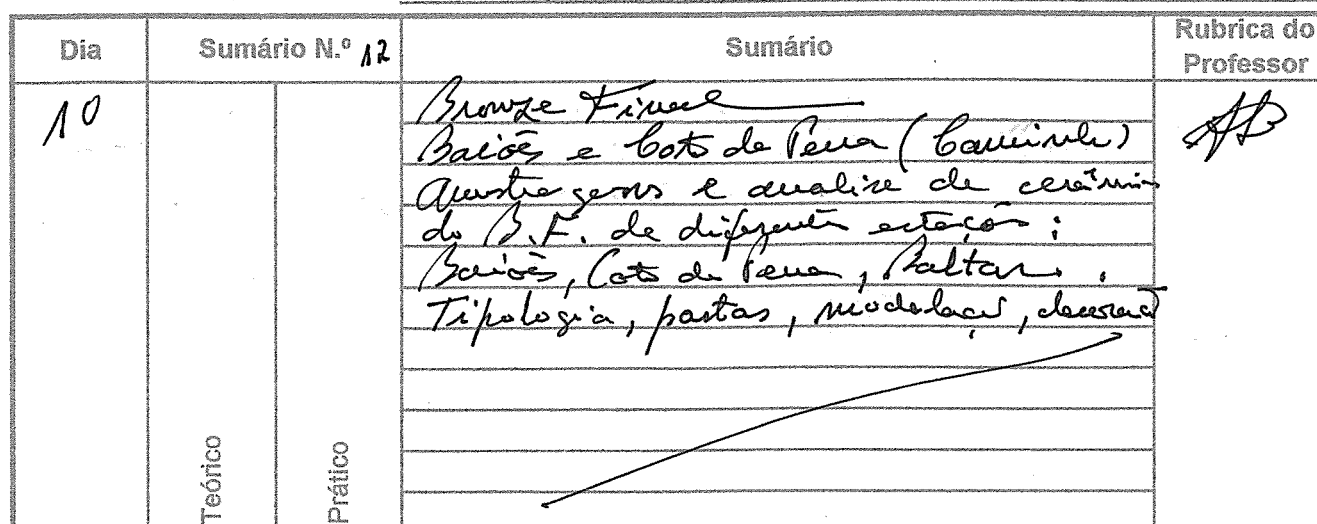 Dia Sumário N.º 12 Sumário Rubrica do Professor
10
Bronze Final
Baiões e Coto da Pena (Caminha)
Amostragens e analise de cerâmica
do B.F. de diferentes estações:
Baiões, Coto da Pena, Baltar.
Tipologia, pastas, modelação, decoração
Teórico
Prático